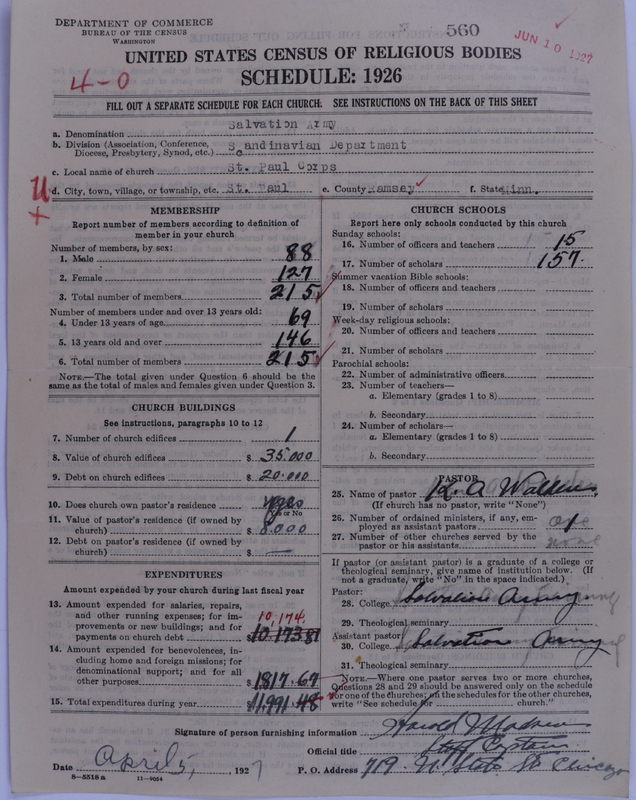 DEPARTMENT OF COMMERCE
BUREAU OF THE CENSUS
WASHINGTON
560
JUN 10 1927
UNITED STATES CENSUS OF RELIGIOUS BODIES
4-0
SCHEDULE: 1926
FILL OUT A SEPARATE SCHEDULE FOR EACH CHURCH. SEE INSTRUCTIONS ON THE BACK OF THIS SHEET
a. Denomination Salvation Army
b. Division (Association, Conference, Diocese, Presbytery, Synod, etc.) Scandinavian Department
c. Local name of church St. Paul Corps
U
d. City, town, village, or township, etc. St. Paul e. County Ramsey f. State Minn.
MEMBERSHIP
Report number of members according to definition of
member in your church
Number of members, by sex:
1. Male 88
2. Female 127
3. Total number of members 215
Number of members under and over 13 years old:
4. Under 13 years of age 69
5. 13 years old and over 146
6. Total number of members 215
NOTE.—The total given under Question 6 should be
same as the total of males and females given under Question 3.
CHURCH BUILDINGS
See instructions, paragraphs 10 to 12
7. Number of church edifices 1
8. Value of church edifices $ 35.000
9. Debt on church edifices $ 20.000
10. Does church own pastor's residence yes
Yes or No
11. Value of pastor's residence (if owned by
church) $ 8.000
12. Debt on pastor's residence (if owned by
church) $ —
EXPENDITURES
Amount expended by your church during last fiscal year
13. Amount expended for salaries, repairs,
and other running expenses; for im-
provements or new buildings; and for
payments on church debt $ 10,173 81
10,174.
14. Amount expended for benevolences, in-
cluding home and foreign missions; for
denominational support; and for all
other purposes $ 1817.67
15. Total expenditures during year $ 11,991.48
CHURCH SCHOOLS
Report here only schools conducted by this church
Sunday schools:
16. Number of officers and teachers 15
17. Number of scholars 157
Summer vacation Bible schools:
18. Number of officers and teachers
19. Number of scholars
Week-day religious schools:
20. Number of officers and teachers
21. Number of scholars
Parochial schools:
22. Number of administrative officers
23. Number of teachers—
a. Elementary (grades 1 to 8)
b. Secondary
24. Number of scholars—
a. Elementary (grades 1 to 8)
b. Secondary
PASTOR
25. Name of pastor K. A.
(If church has no pastor, write "None")
26. Number of ordained ministers, if any, em-
ployed as assistant pastors one
27. Number of other churches served by the
pastor or his assistants none
If pastor (or assistant pastor) is a graduate of a college or
theological seminary, give name of institution below. (If
not a graduate, write "No" in the space indicated.)
Pastor:
28. College Salvation Army
29. Theological seminary
Assistant pastor:
30. College Salvation Army
31. Theological seminary
NOTE.—Where one pastor serves two or more churches,
Questions 28 and 29 should be answered only on the schedule
for one of the churches; on the schedules for the other churches,
write "See schedule for church."
Signature of person furnishing information Harold Madsen
Official title Staff Captain
Date April 5, 1927 P. O. Address 719. N. State St. Chicago
8—5518 a 11—9054